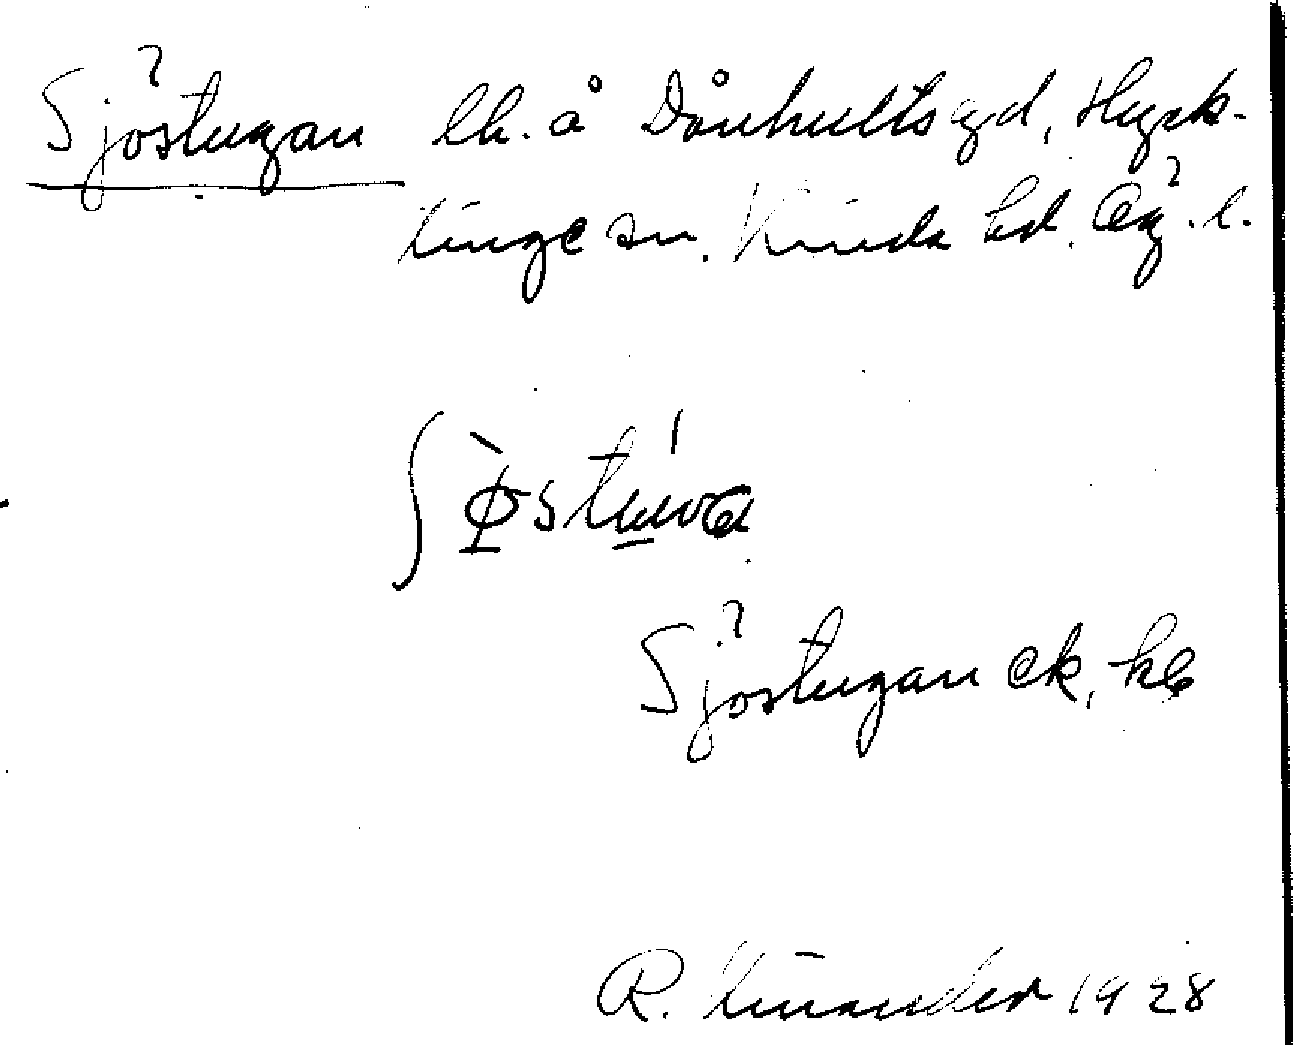 Sjöstugan lh. å Dånhults gd, Hyck-
linge sn. Kinda hd. Ög. l.
Sjöstugan ek, kb
R. Linander 1928